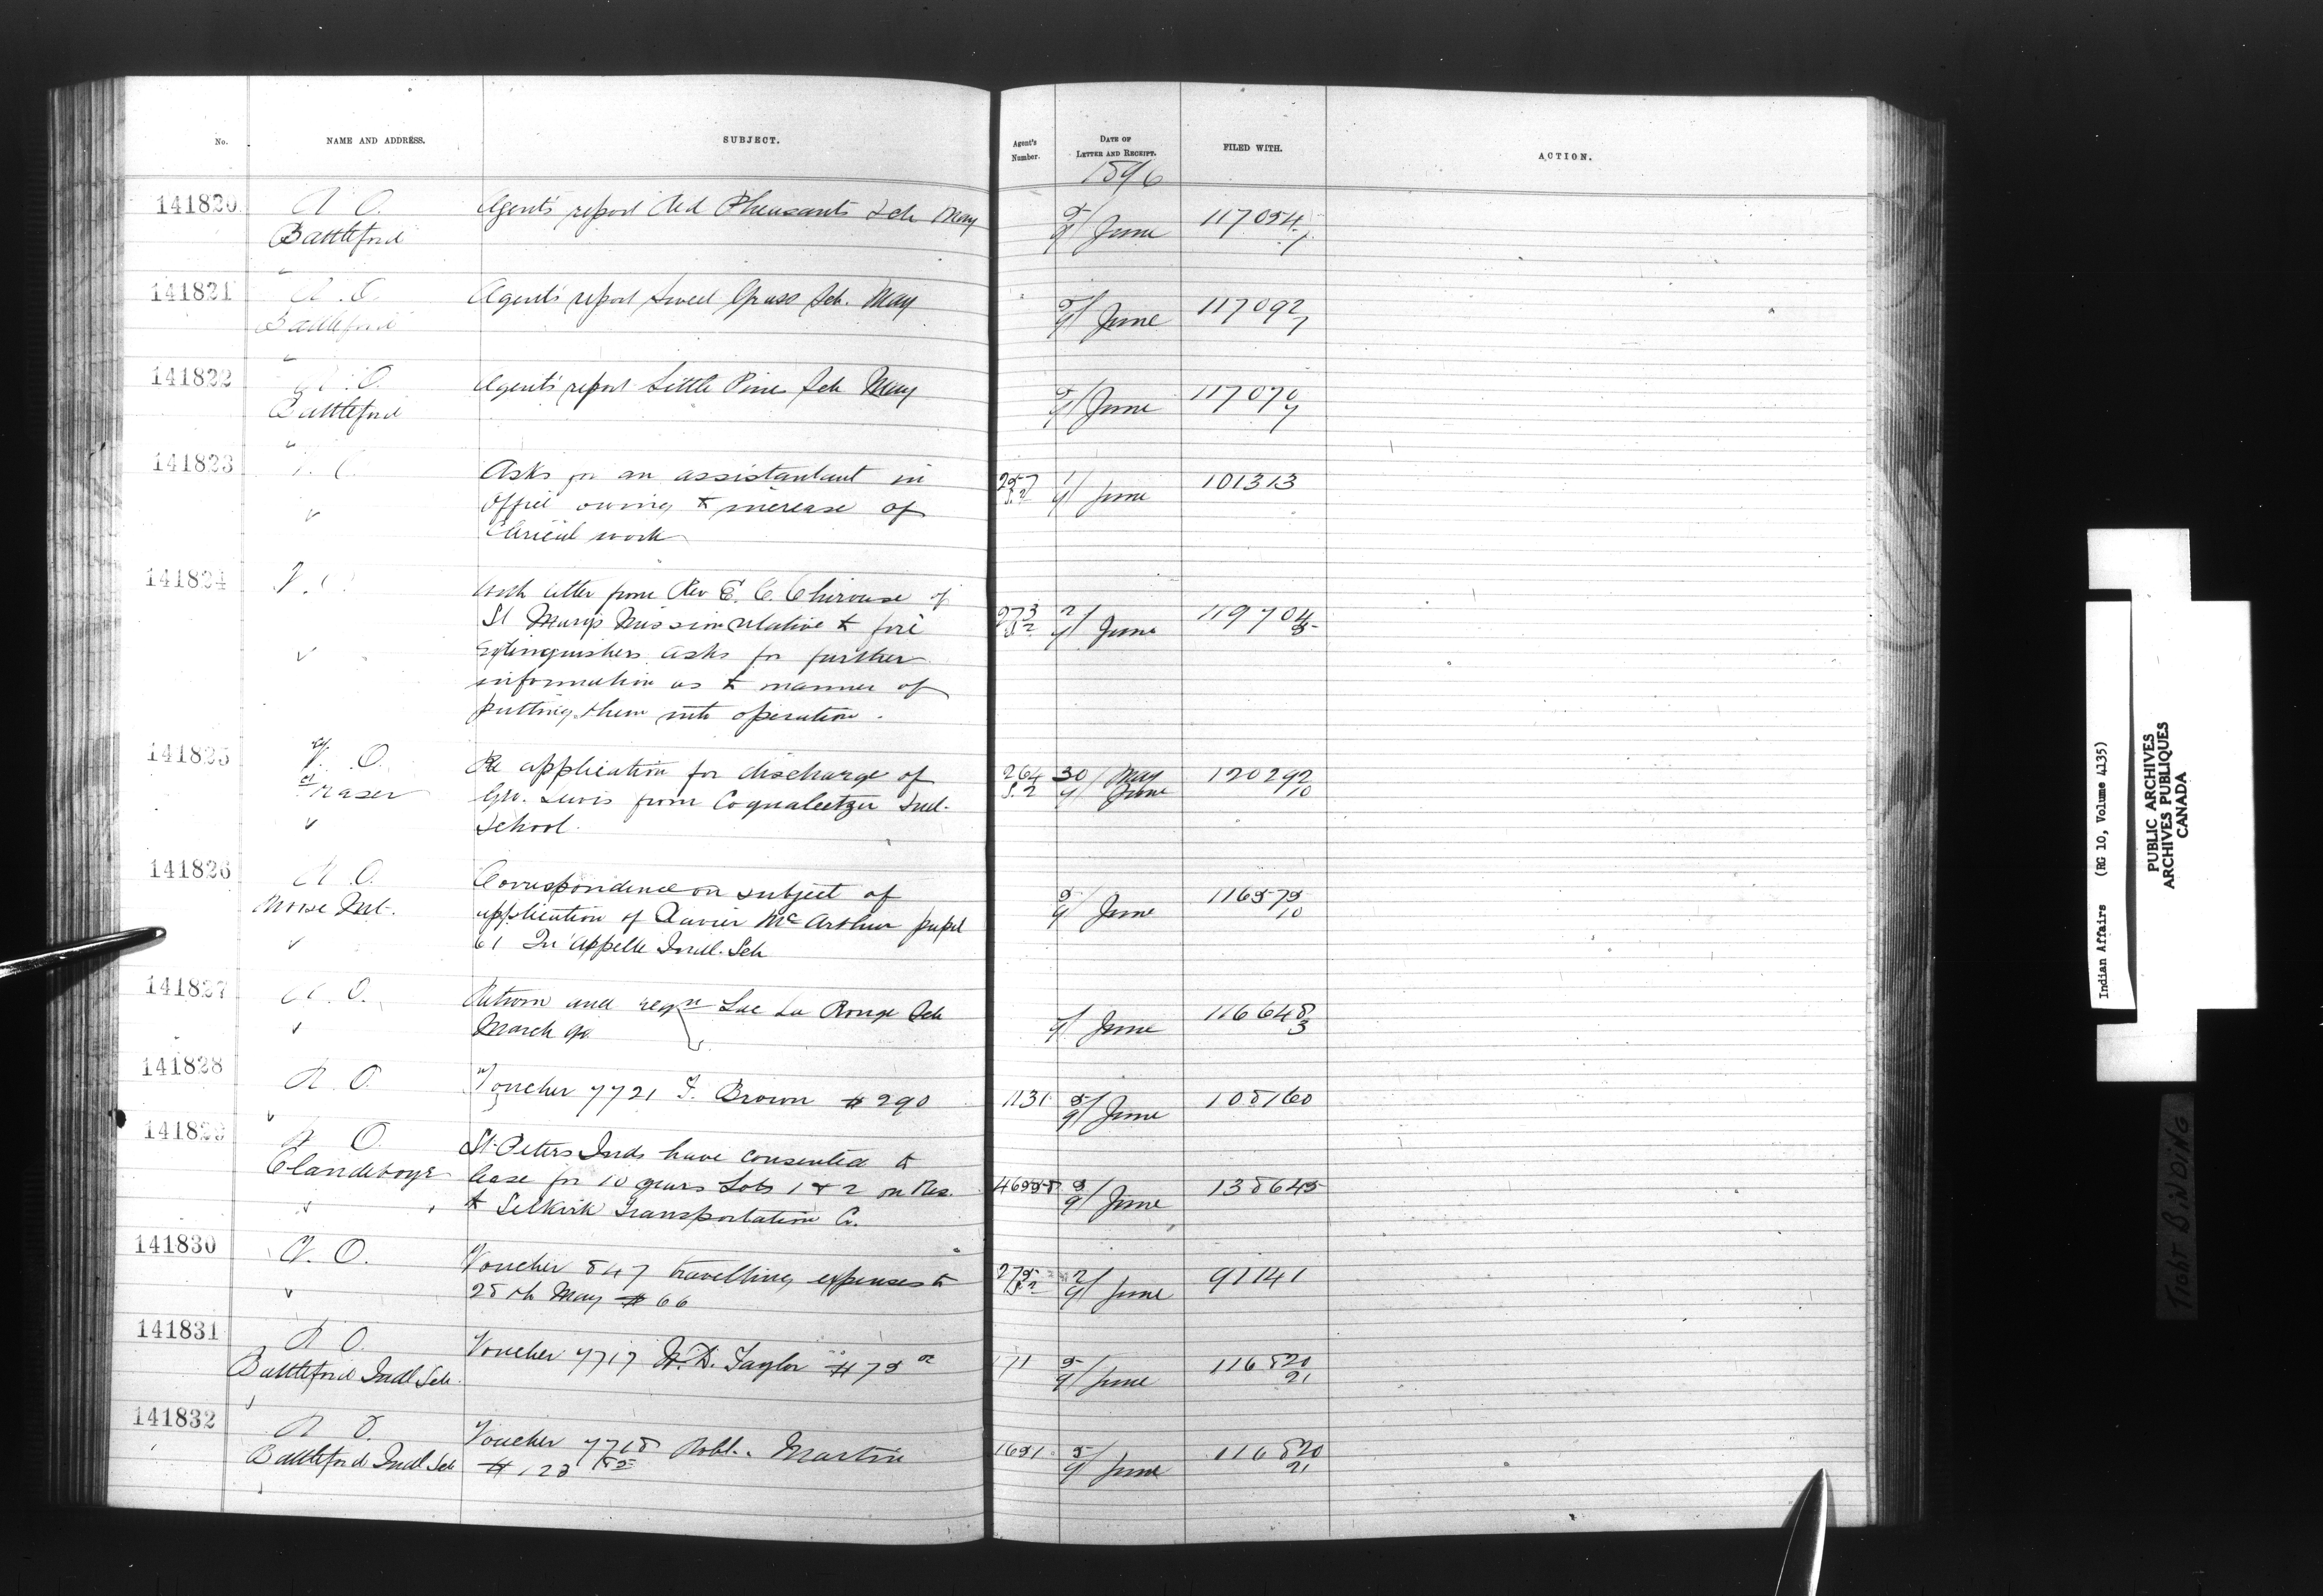 No. NAME AND ADDRESS. SUBJECT. Agent's Number. DATE OF LETTER AND RECEIPT. FILED WITH. ACTION.
1896
141820 R O. Agent's report Red Pheasants Sch May 5/9 June 117054/7
Battleford
141821 R. O. Agent's report Sweet Grass Sch. May 5/9 June 117092/7
Battleford
141822 R. O. Agent's report Little Pines Sch May 5/9 June 117070/7
Battleford
141823 V. O. Asks for an assistantant in 257/S.2 1/9 June 101313
Office owing to increase of
Clerical work
141824 V. O. With letter from Rev E. C. Chirouse of
St Marys Mission relative to fire 273/S.2 2/9 June 119704/3
Extinguishers asks for further
information as to manner of
putting them into operation.
141825 V. O. Re application for discharge of 264/S.2 30/ May 120292/10
Fraser Geo. Lewis from Coqualeetza Indl. 9/ June
School.
141826 R O. Correspondence on subject of
Moose Mt. application of Xavier McArthur pupil 5/9 June 116575/10
61 Qu'Appelle Indl. Sch
141827 R. O. Return and reqn Lac La Ronge Sch 9/ June 116648/3
March qr
141828 R. O. Voucher 7721 F. Brown $290 1131 5/9 June 108160
141829 R O. St. Peters Inds have consented to
Clandeboye lease for 10 years Lots 1 & 2 on Res. 5/9 June 138645
to Selkirk Transportation Co.
141830 V. O. Voucher 847 travelling expenses to 275/S.2 2/9 June 91141
28th May $66
141831 R O. Voucher 7717 W. D. Taylor $75 00 171 5/9 June 116820/21
Battleford Indl Sch.
141832 R O. Voucher 7718 Robt. Martin 1651 5/9 June 116820/21
Battleford Indl Sch
Indian Affairs (RG 10, Volume 4135)
PUBLIC ARCHIVES
ARCHIVES PUBLIQUES
CANADA
TIGHT BINDING